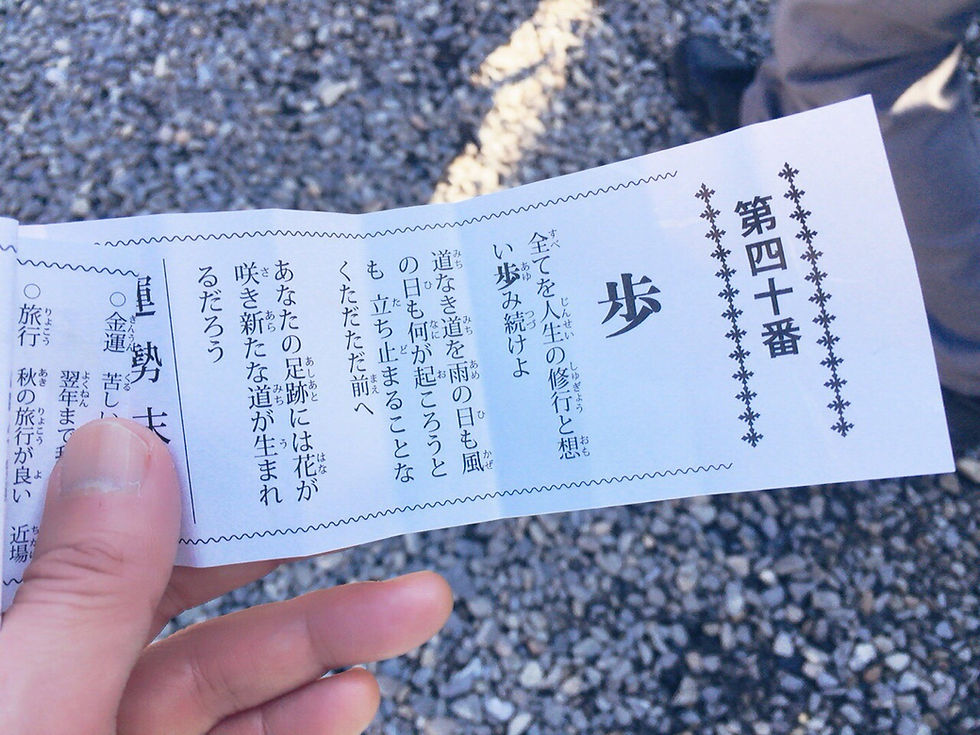 第四十番
歩
全てを人生の修行と想
い歩み続けよ
道なき道を雨の日も風
の日も何が起ころうと
も 立ち止まることな
くただただ前へ
あなたの足跡には花が
咲き新たな道が生まれ
るだろう
運勢
○金運 苦し
翌年まで
○旅行 秋の旅行が良い 近場